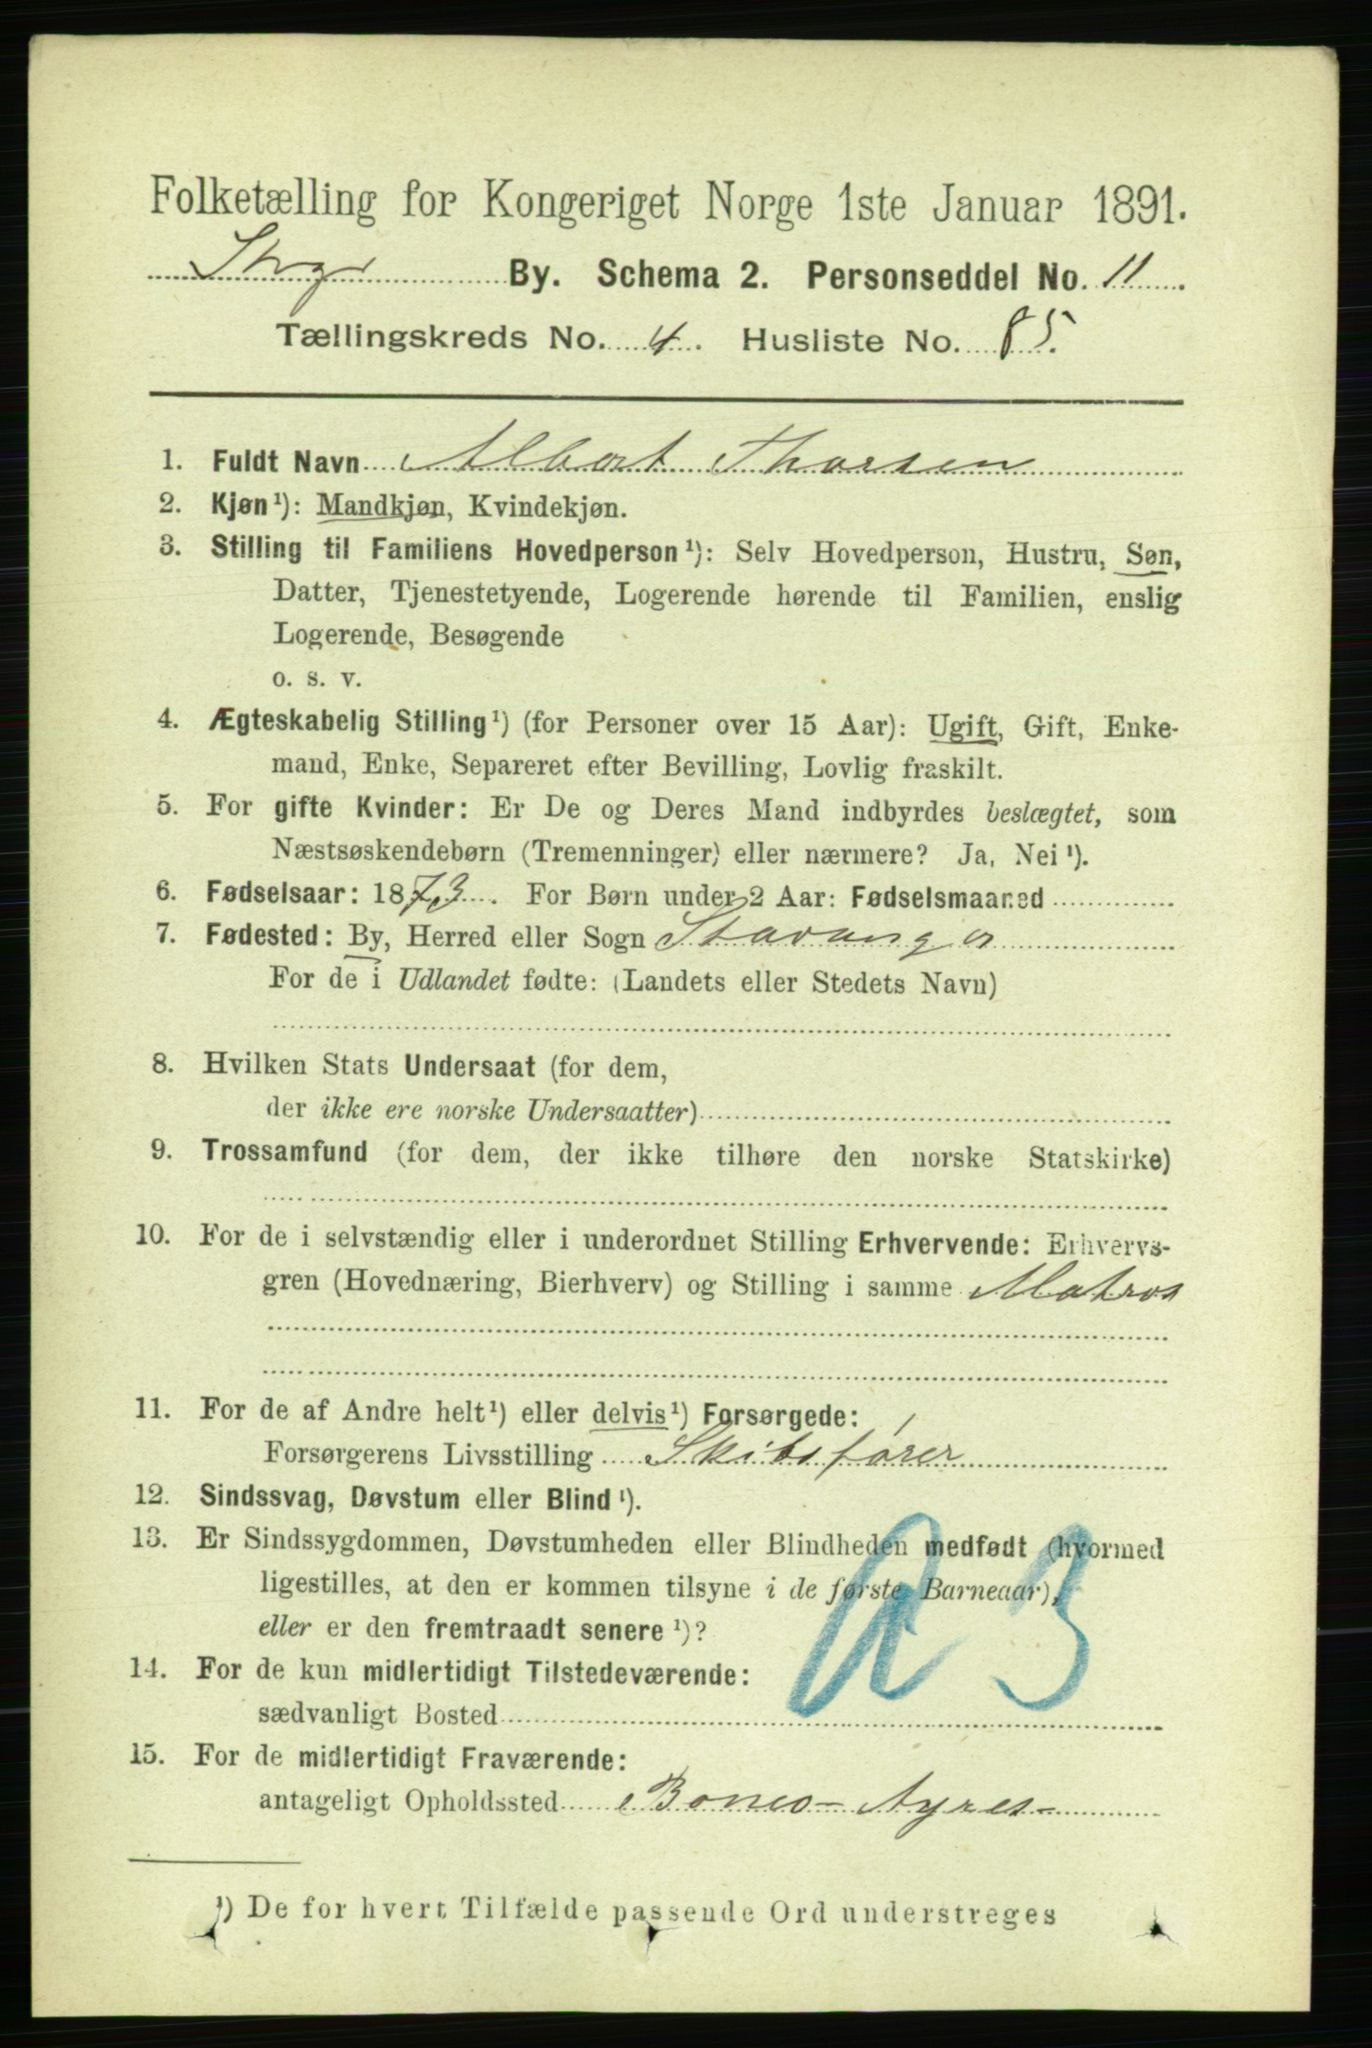 Folketælling for Kongeriget Norge 1ste Januar 1891.
Stvgr By. Schema 2. Personseddel No. 11
Tællingskreds No. 4. Husliste No. 85.
1. Fuldt Navn Albert Thorsen
2. Kjøn¹): Mandkjøn, Kvindekjøn.
3. Stilling til Familiens Hovedperson¹): Selv Hovedperson, Hustru, Søn,
Datter, Tjenestetyende, Logerende hørende til Familien, enslig
Logerende, Besøgende
o. s. v.
4. Ægteskabelig Stilling¹) (for Personer over 15 Aar): Ugift, Gift, Enke-
mand, Enke, Separeret efter Bevilling, Lovlig fraskilt.
5. For gifte Kvinder: Er De og Deres Mand indbyrdes beslægtet, som
Næstsøskendebørn (Tremenninger) eller nærmere? Ja, Nei¹).
6. Fødselsaar: 1873. For Børn under 2 Aar: Fødselsmaaned
7. Fødested: By, Herred eller Sogn Stavanger
For de i Udlandet fødte: (Landets eller Stedets Navn)
8. Hvilken Stats Undersaat (for dem,
der ikke ere norske Undersaatter)
9. Trossamfund (for dem, der ikke tilhøre den norske Statskirke)
10. For de i selvstændig eller i underordnet Stilling Erhvervende: Erhvervs-
gren (Hovednæring, Bierhverv) og Stilling i samme Matros
11. For de af Andre helt¹) eller delvis¹) Forsørgede:
Forsørgerens Livsstilling Skibsfører
12. Sindssvag, Døvstum eller Blind¹).
13. Er Sindssygdommen, Døvstumheden eller Blindheden medfødt (hvormed
ligestilles, at den er kommen tilsyne i de første Barneaar),
eller er den fremtraadt senere¹)?
14. For de kun midlertidigt Tilstedeværende:
sædvanligt Bosted
15. For de midlertidigt Fraværende:
antageligt Opholdssted Bones-Ayres-
¹) De for hvert Tilfælde passende Ord understreges